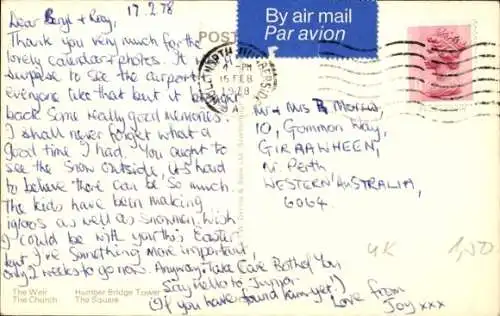 17.2.78
Dear Beryl + Roy,
Thank you very much for the
lovely calendar + photos. It
surprise to see the airport +
everyone like that but it brought
back some really good memories.
I shall never forget what a
good time I had. You ought to
see the snow outside, it's hard
to believe there can be so much.
The kids have been making
igloos as well as snowmen. Wish
I could be with you this Easter
but I've something more important,
only 2 weeks to go now. Anyway, Take Care Both of You
Say hello to
(If you have found him yet!)
Love from
Joy xxx
The Weir
The Church
Humber Bridge Tower
The Square
POST
By air mail
Par avion
NORTH HUMBERSIDE
-PM
15 FEB
1978
A
Mr + Mrs B Morris,
10, Gommon Way,
GIRRAWHEEN,
N. Perth
WESTERN AUSTRALIA,
6064
UK
1,50